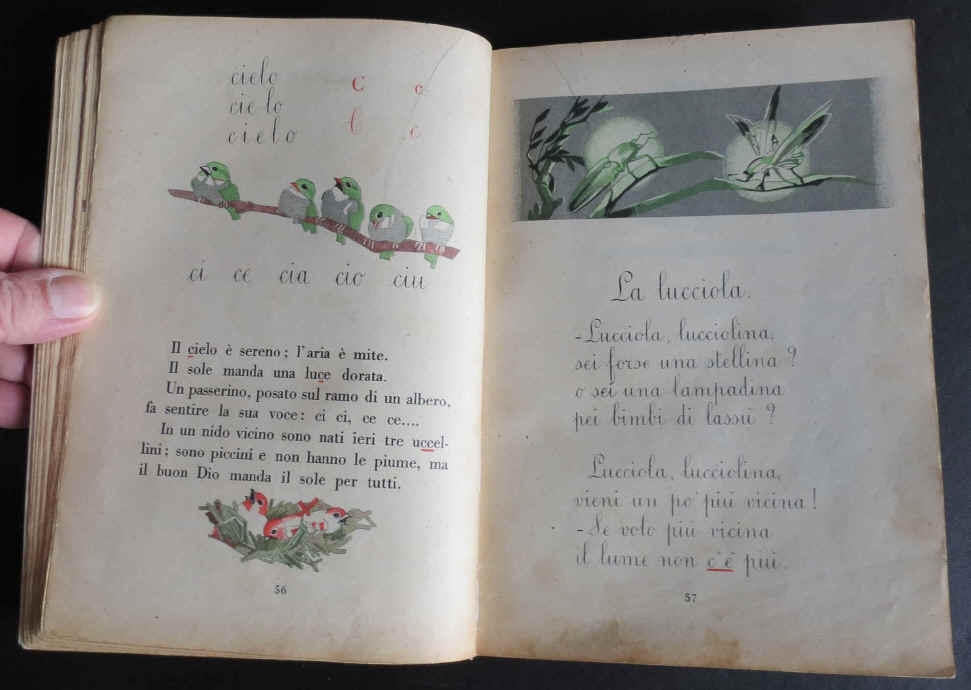 cielo
cie lo
c i e l o
c c
C c
ci ce cia cio ciu
Il cielo è sereno; l'aria è mite.
Il sole manda una luce dorata.
Un passerino, posato sul ramo di un albero,
fa sentire la sua voce: ci ci, ce ce....
In un nido vicino sono nati ieri tre uccel-
lini; sono piccini e non hanno le piume, ma
il buon Dio manda il sole per tutti.
56
La lucciola.
-Lucciola, lucciolina,
sei forse una stellina?
o sei una lampadina
pei bimbi di lassù?
Lucciola, lucciolina,
vieni un po' più vicina!
-Se volo più vicina
il lume non c'è più.
57